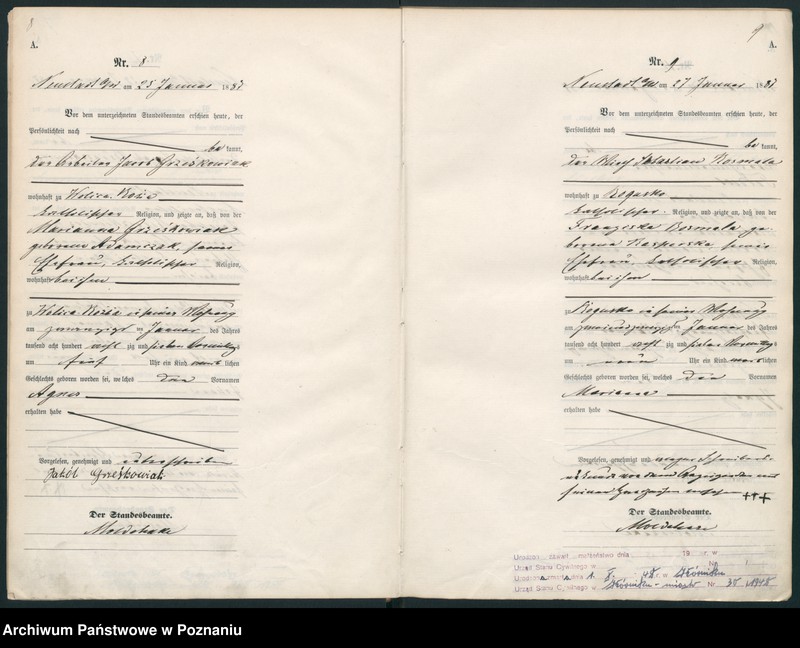 8
A.
Nr. 8
Neustadt a/W am 25 Januar 1887
Vor dem unterzeichneten Standesbeamten erschien heute, der
Persönlichkeit nach
be kannt,
der Arbeiter Jacob Grześkowiak
wohnhaft zu Wolica
katholischer Religion, und zeigte an, daß von der
Marianna Grześkowiak
geborene Adamczak, seiner
Ehefrau, katholischer Religion,
wohnhaft bei ihm
zu Wolica in seiner Wohnung
am zwanzigsten Januar des Jahres
tausend acht hundert acht zig und sieben Vormittags
um fünf Uhr ein Kind lichen
Geschlechts geboren worden sei, welches den Vornamen
Agnes
erhalten habe
Vorgelesen, genehmigt und unterschrieben
Jakób Grześkowiak
Der Standesbeamte.
9
A.
Nr. 9
Neustadt a/W am 27 Januar 1887
Vor dem unterzeichneten Standesbeamten erschien heute, der
Persönlichkeit nach
be kannt,
der Sebastian
wohnhaft zu Bogusko
katholischer Religion, und zeigte an, daß von der
Franziska ge-
borene Kasperska, seiner
Ehefrau, katholischer Religion,
wohnhaft bei ihm
zu Bogusko in seiner Wohnung
am zweiundzwanzigsten Januar des Jahres
tausend acht hundert acht zig und sieben Vormittags
um neun Uhr ein Kind lichen
Geschlechts geboren worden sei, welches den Vornamen
Marianna
erhalten habe
Vorgelesen, genehmigt und wegen Schreibens-
unkunde von dem Anzeigenden mit
seinem Handzeichen versehen +++
Der Standesbeamte.
zawarł małżeństwo dnia 19 r. w
Urząd Stanu Cywilnego w Nr. /
48 r. w
Urząd Stanu Cywilnego w Nr. 30 /1948
Archiwum Państwowe w Poznaniu